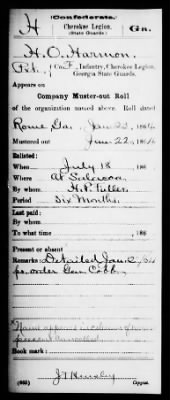 (Confederate.)
H Cherokee Legion. Ga.
(State Guards.)
H. O. Harmon
Pvt., Co. F, Infantry, Cherokee Legion,
Georgia State Guards.
Appears on
Company Muster-out Roll
of the organization named above. Roll dated
Rome Ga., Jan 22, 1864
Mustered out Jan 22, 1864
Enlisted:
When July 18, 186
Where At
By whom H. P. Fuller
Period Six Months.
Last paid:
By whom
To what time , 186
Present or absent
Remarks: Detailed Jan
pr. order Gen Cobb
Name appears in column of names
present
Book mark:
(665) Copyist.